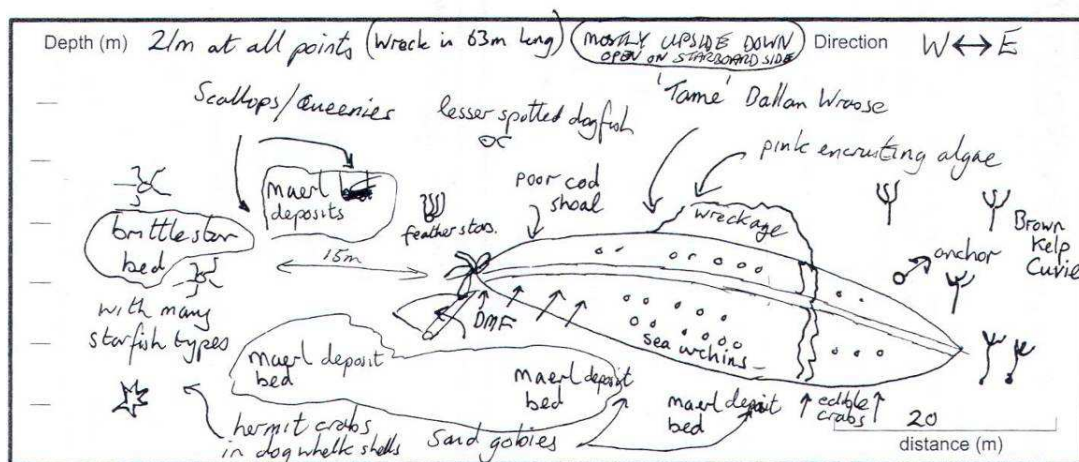 Depth (m) 21m at all points (Wreck is 63m long) (MOSTLY UPSIDE DOWN
OPEN ON STARBOARD SIDE) Direction W ↔ E
Scallops/Queenies
lesser spotted dogfish
'Tame' Ballan Wrasse
pink encrusting algae
maerl
deposits
poor cod
shoal
feather stars.
wreckage
brittlestar
bed
15m
anchor
Brown
Kelp
Cuvie
with many
starfish types
DMF
sea urchins
maerl deposit
bed
maerl deposit
bed
maerl deposit
bed
edible
crabs
hermit crabs
in dog whelk shells
Sand gobies
20
distance (m)